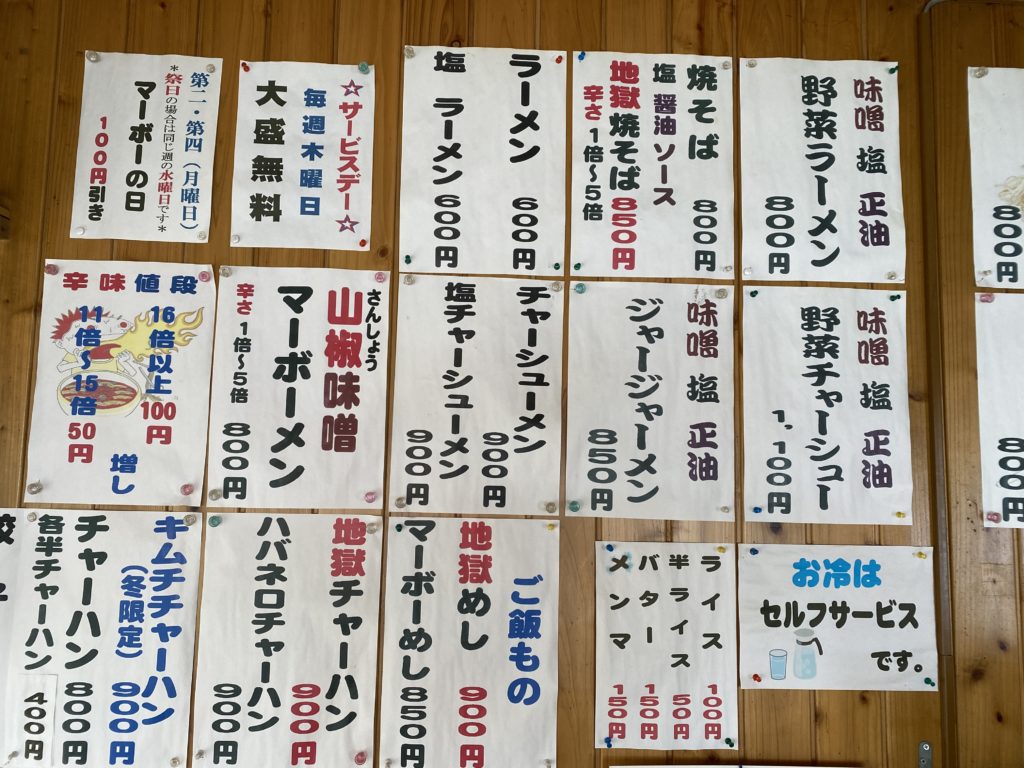 第二・第四(月曜日)
*祭日の場合は同じ週の水曜日です*
マーボーの日
100円引き
☆サービスデー☆
毎週木曜日
大盛無料
ラーメン 600円
塩 ラーメン 600円
焼そば 800円
塩 醤油 ソース
地獄焼そば 850円
辛さ 1倍~5倍
味噌 塩 正油
野菜ラーメン
800円
800円
辛味値段
16倍以上 100円
11倍~15倍 50円
増し
さんしょう
山椒味噌
マーボーメン
辛さ 1倍~5倍 800円
チャーシューメン 900円
塩チャーシューメン 900円
味噌 塩 正油
ジャージャーメン
850円
味噌 塩 正油
野菜チャーシュー
1,100円
800円
キムチチャーハン
(冬限定) 900円
チャーハン 800円
各半チャーハン 400円
地獄チャーハン 900円
ハバネロチャーハン 900円
ご飯もの
地獄めし 900円
マーボーめし 850円
ライス 100円
半ライス 50円
バター 150円
メンマ 150円
お冷は
セルフサービス
です。